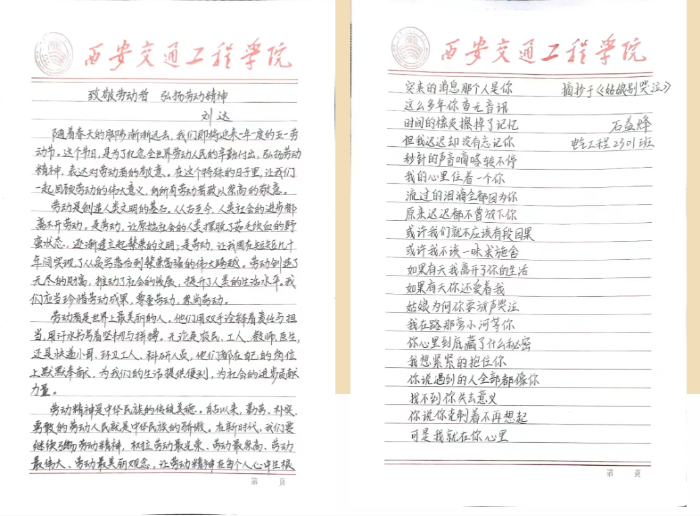 西安交通工程学院
致敬劳动者 弘扬劳动精神
刘达
随着春天的脚步渐渐远去，我们即将迎来一年一度的五一劳
动节。这个节日，是为了纪念全世界劳动人民的辛勤付出，弘扬劳动
精神，表达对劳动者的敬意。在这个特殊的日子里，让我们
一起回顾劳动的伟大意义，向所有劳动者致以崇高的敬意。
劳动是创造人类文明的基石。从古至今，人类社会的进步都
离不开劳动。是劳动，让原始社会的人类摆脱了茹毛饮血的野
蛮状态，逐渐建立起璀璨的文明；是劳动，让我国在短短几十
年间实现了从贫穷落后到繁荣富强的伟大跨越。劳动创造了
无尽的财富，推动了社会的发展，提升了人类的生活水平。我
们应当珍惜劳动成果，尊重劳动，崇尚劳动。
劳动者是世界上最美丽的人。他们用双手诠释着责任与担
当，用汗水书写着坚韧与拼搏。无论是农民、工人、教师、医生，
还是快递小哥、环卫工人、科研人员，他们都在自己的岗位
上默默奉献，为我们的生活提供便利，为社会的进步贡献
力量。
劳动精神是中华民族的传统美德。自古以来，勤劳、朴实、
勇敢的劳动人民就是中华民族的骄傲。在新时代，我们要
继续弘扬劳动精神，树立劳动最光荣、劳动最崇高、劳动
最伟大、劳动最美丽观念，让劳动精神在每个人心中生根
第 页
西安交通工程学院
突来的消息那个人是你 摘抄于《姑娘别哭泣》
这么多年你杳无音讯
时间的惊炙操掉了记忆 石益烽
但我迟迟却没有忘记你 电气工程2301班
秒针的声音嘀嗒较不停
我的心里住着一个你
流过的泪滴全都因为你
原来迟迟都不曾放下你
或许我们就不应该有段因果
或许我不该一味求施舍
如果有天我离开了你的生活
如果有天你还爱着我
姑娘为何你要放声哭泣
我在路那旁小河等你
你心里到底藏了什么秘密
我想紧紧的抱住你
你说遇到的人全部都像你
找不到你失去意义
你说你克制着不再想起
可是我就在你心里
第 页